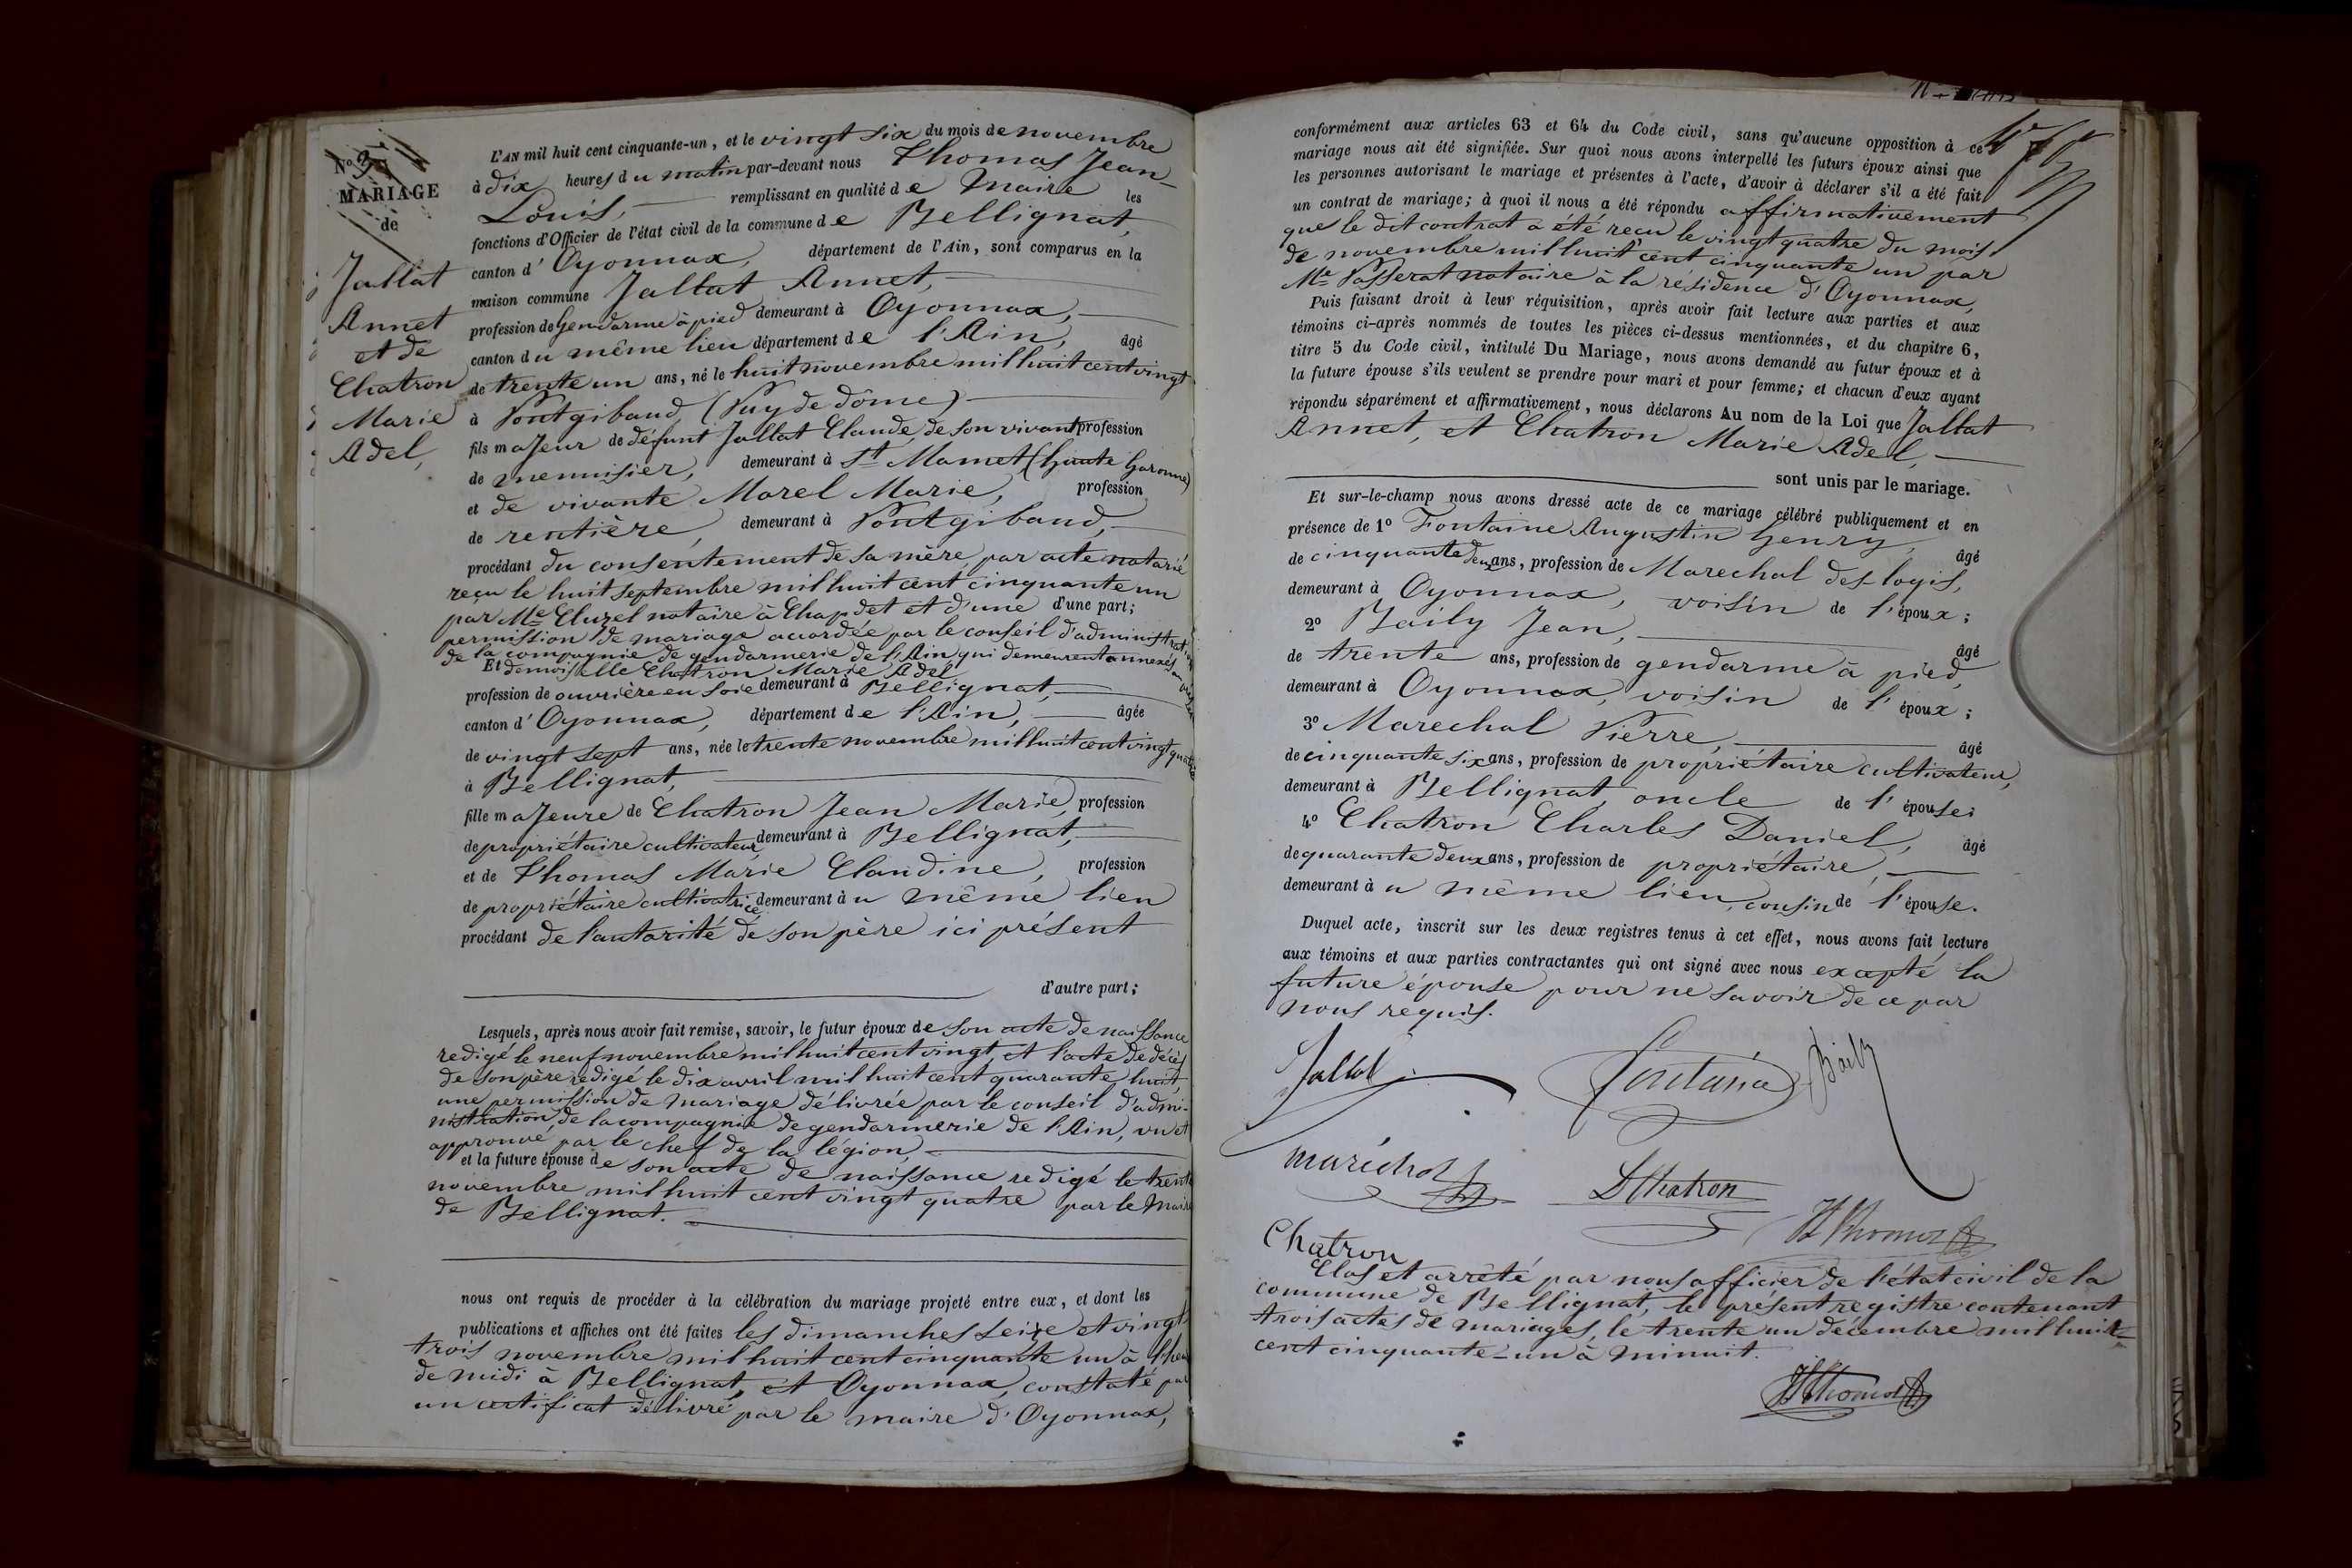 N° 3
MARIAGE
de
Jallat
Annet
et de
Chatron
Marie
Adel,
L'AN mil huit cent cinquante-un, et le vingt six du mois de novembre
à dix heures du matin par-devant nous Thomas Jean-
Louis, remplissant en qualité de Maire les
fonctions d'Officier de l'état civil de la commune de Bellignat,
canton d'Oyonnax, département de l'Ain, sont comparus en la
maison commune Jallat Annet,
profession de Gendarme à pied demeurant à Oyonnax,
canton du même lieu département de l'Ain, âgé
de trente un ans, né le huit novembre mil huit cent vingt
à Pontgibaud, (Puy de dôme)
fils majeur de défunt Jallat Claude, de son vivant profession
de menuisier, demeurant à St Mamet (haute Garonne)
et de vivante Morel Marie, profession
de rentière, demeurant à Pontgibaud,
procédant du consentement de sa mère, par acte notarié
reçu le huit septembre mil huit cent cinquante un
par Me Cluzel notaire à Chapdet et d'une d'une part;
permission de mariage accordée par le conseil d'administration
de la compagnie de gendarmerie de l'Ain qui demeurent annexés
Et demoiselle Chatron Marie Adel
profession de ouvrière en soie demeurant à Bellignat,
canton d'Oyonnax, département de l'Ain, âgée
de vingt sept ans, née le trente novembre mil huit cent vingt quatre
à Bellignat,
fille majeure de Chatron Jean Marie, profession
de propriétaire cultivateur demeurant à Bellignat,
et de Thomas Marie Claudine, profession
de propriétaire cultivatrice, demeurant au même lieu
procédant de l'autorité de son père ici présent
d'autre part;
Lesquels, après nous avoir fait remise, savoir, le futur époux de son acte de naissance
redigé le neuf novembre mil huit cent vingt, et l'acte de décès
de son père redigé le dix avril mil huit cent quarante huit,
une permission de mariage délivrée par le conseil d'admi-
nistration de la compagnie de gendarmerie de l'Ain, vu et
approuvé par le chef de la légion,
et la future épouse de son acte de naissance redigé le trente
novembre mil huit cent vingt quatre par le Maire
de Bellignat.
nous ont requis de procéder à la célébration du mariage projeté entre eux, et dont les
publications et affiches ont été faites les dimanches seize et vingt
trois novembre mil huit cent cinquante un à l'heure
de midi à Bellignat, et Oyonnax, constaté par
un certificat délivré par le maire d'Oyonnax,
conformément aux articles 63 et 64 du Code civil, sans qu'aucune opposition à ce
mariage nous ait été signifiée. Sur quoi nous avons interpellé les futurs époux ainsi que
les personnes autorisant le mariage et présentes à l'acte, d'avoir à déclarer s'il a été fait
un contrat de mariage; à quoi il nous a été répondu affirmativement
que le dit contrat a été reçu le vingt quatre du mois
de novembre mil huit cent cinquante un par
Me Passerat notaire à la résidence d'Oyonnax,
Puis faisant droit à leur réquisition, après avoir fait lecture aux parties et aux
témoins ci-après nommés de toutes les pièces ci-dessus mentionnées, et du chapitre 6,
titre 5 du Code civil, intitulé Du Mariage, nous avons demandé au futur époux et à
la future épouse s'ils veulent se prendre pour mari et pour femme; et chacun d'eux ayant
répondu séparément et affirmativement, nous déclarons Au nom de la Loi que Jallat
Annet, et Chatron Marie Adel,
sont unis par le mariage.
Et sur-le-champ nous avons dressé acte de ce mariage célébré publiquement et en
présence de 1° Fontaine Augustin henry, âgé
de cinquante deux ans, profession de Marechal des-logis,
demeurant à Oyonnax, voisin de l'époux;
2° Baily Jean, âgé
de trente ans, profession de gendarme à pied,
demeurant à Oyonnax, voisin de l'époux;
3° Marechal Pierre, âgé
de cinquante six ans, profession de propriétaire cultivateur,
demeurant à Bellignat oncle de l'épouse;
4° Chatron Charles Daniel, âgé
de quarante deux ans, profession de propriétaire,
demeurant au même lieu, cousin de l'épouse.
Duquel acte, inscrit sur les deux registres tenus à cet effet, nous avons fait lecture
aux témoins et aux parties contractantes qui ont signé avec nous excepté la
future épouse pour ne savoir de ce par
nous requis.
Jallat Fontaine Baily
maréchal D Chatron
Jl Thomas
Chatron
Clos et arrêté par nous officier de l'état civil de la
commune de Bellignat, le présent registre contenant
trois actes de mariages, le trente un décembre mil huit-
cent cinquante-un à minuit.
Jl Thomas